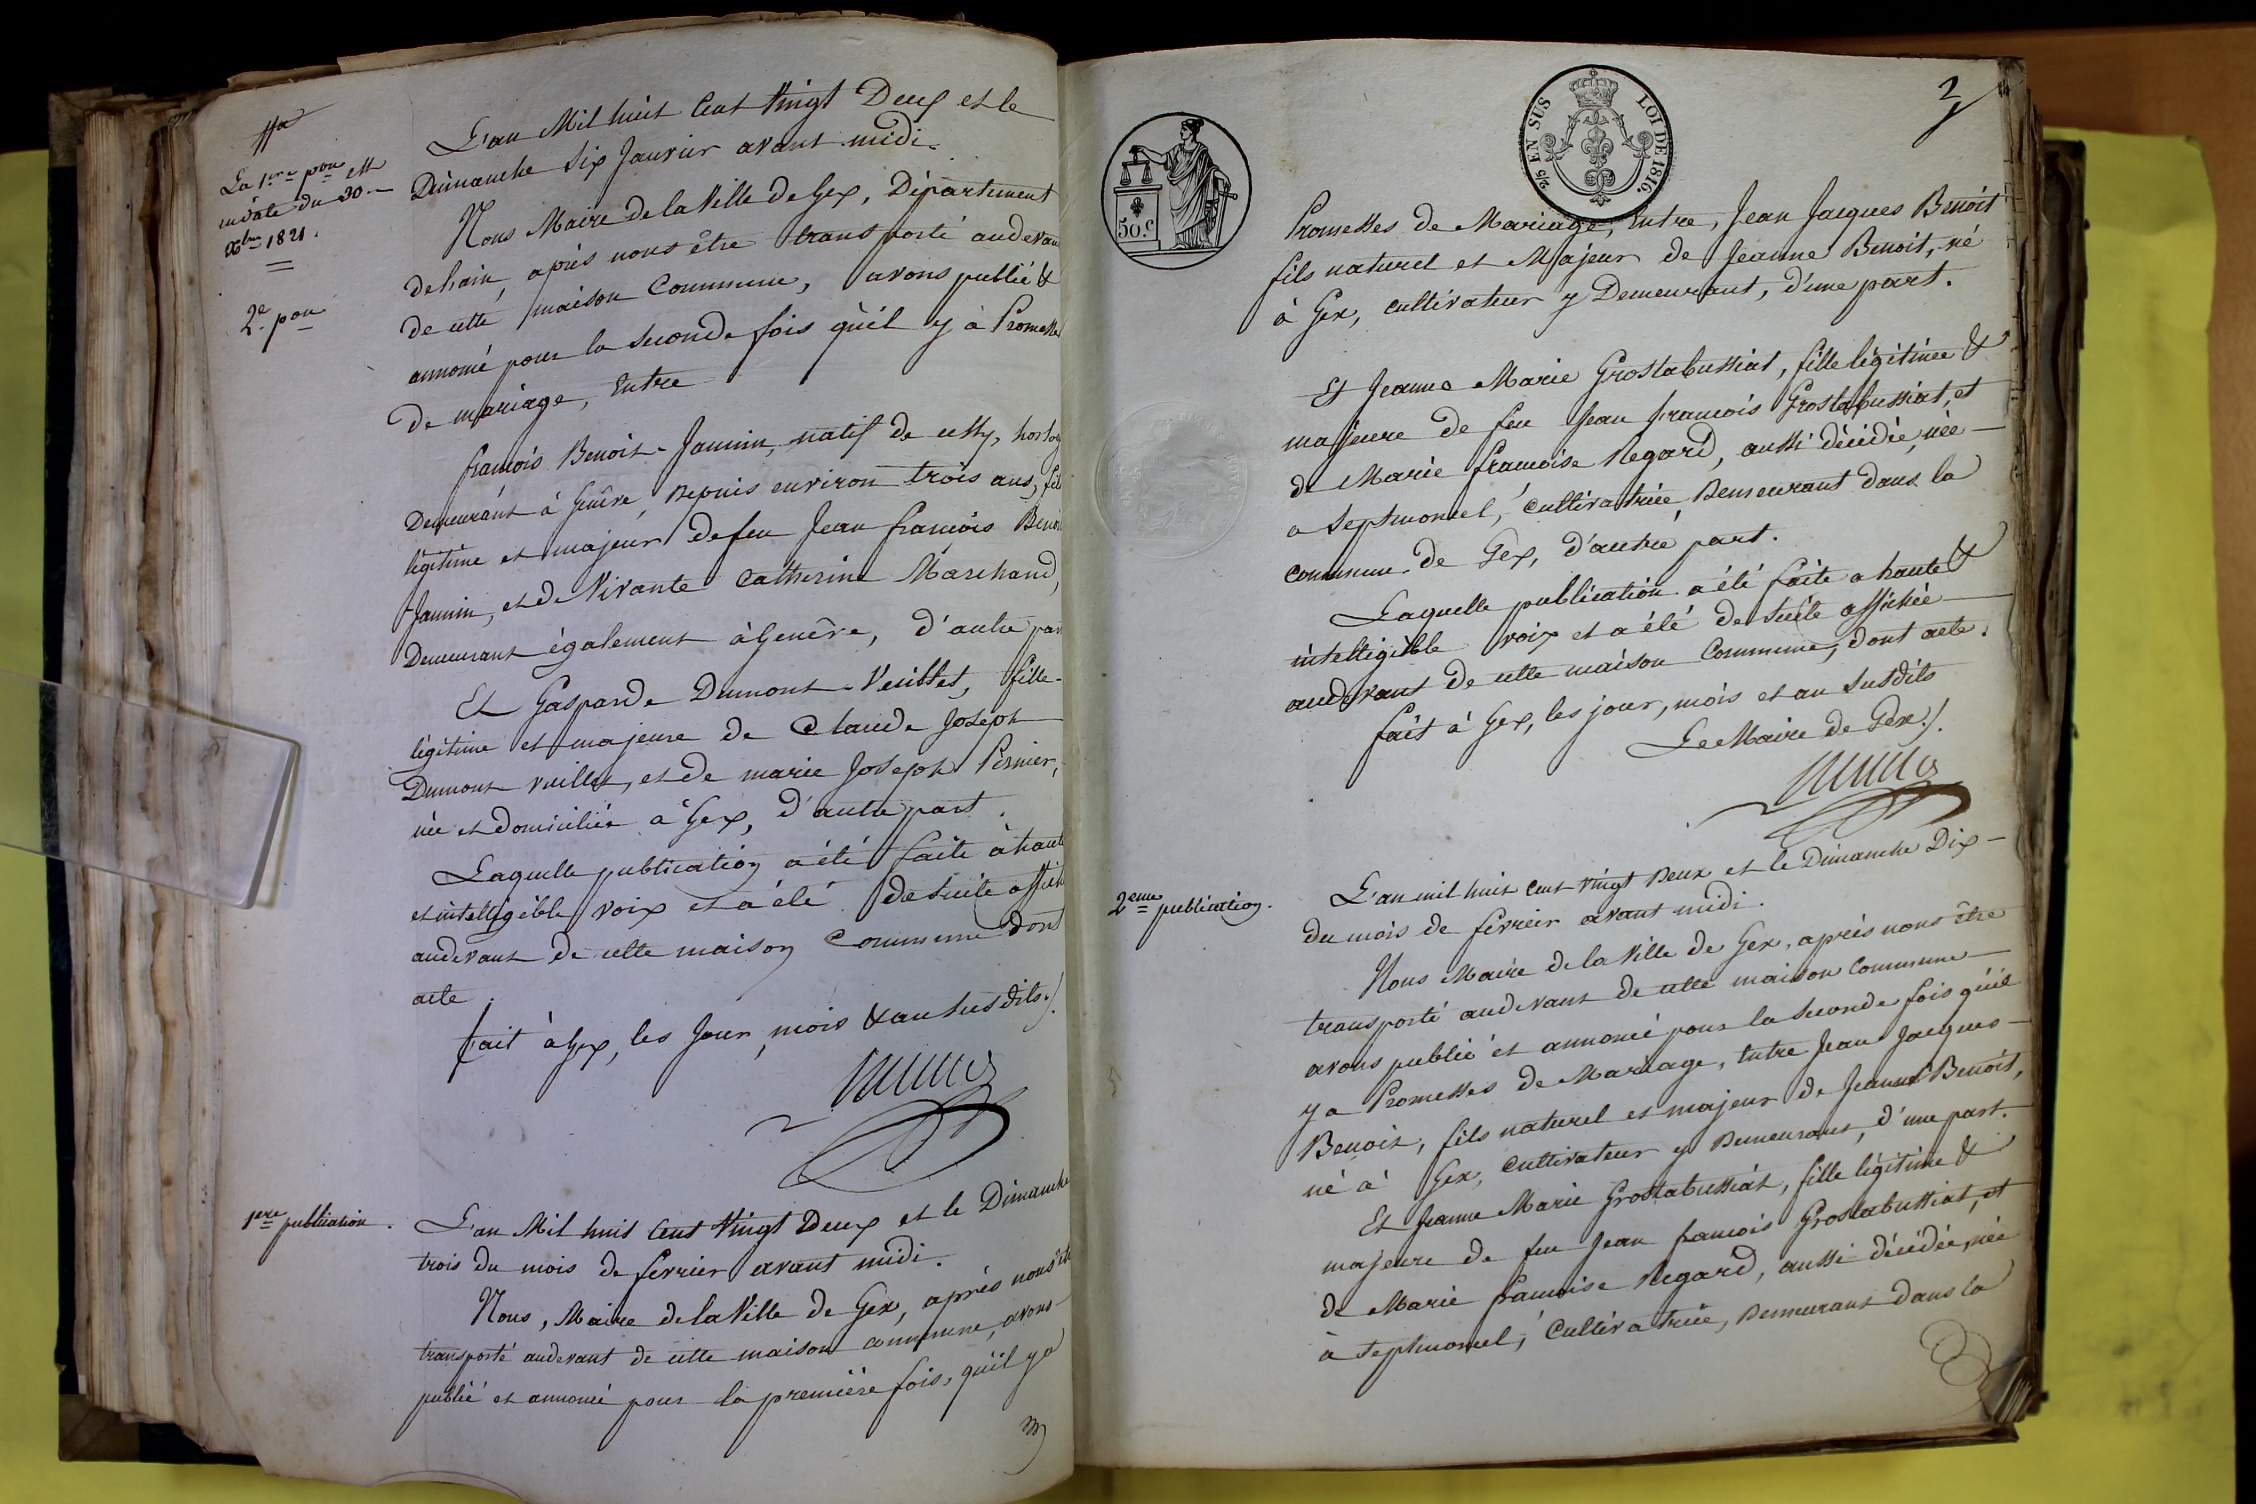 La 1ere pon est
en date du 30
Xbre 1821.
2e pon
L'an Mil huit Cent Vingt Deux et le
Dimanche Six Janvier avant midi.
Nous Maire de la Ville de Gex, Département
de l'ain, après nous être transporté audevant
de cette maison Commune, avons publié &
annoncé pour la seconde fois qu'il y à Promesse
de mariage, Entre
françois Benoit-Jannin, natif de cessy, horlog
Demeurant à Genêve, Depuis environ trois ans, fils
légitime et majeur de feu Jean françois Benoit
Jannin, et de Vivante Catherine Marchand,
Demeurant également à Genêve, d'autre part
Et Gasparde Dumont-Veillet, fille
légitime et majeure de Claude Joseph
Dumont vuillet, et de marie Joseph Pernier,
née et domiciliée à Gex, d'autre part.
Laquelle publication a été faite à haute
et intelligible voix et a été de suite affich
audevant de cette maison Commune dont
acte.
fait à Gex, les Jour, mois & an susdits./.
1ere publication.
L'an Mil huit Cent Vingt Deux et le Dimanche
trois du mois de fevrier avant midi.
Nous, Maire de la Ville de Gex, après nous être
transporté audevant de cette maison commune, avons
publié et annoncé pour la première fois, qu'il y a
2/5 EN SUS LOI DE 1816.
50.C
Promesses de Mariage, Entre, Jean Jacques Benoit
fils naturel et Majeur de Jeanne Benoit, né
à Gex, cultivateur y Demeurant, d'une part.
Et Jeanne Marie Groslabussiat, fille légitimée &
majeure de feu Jean francois Groslabussiat, et
de Marie francoise Regard, aussi décédée, née
a Septmoncel, Cultivatrice, Demeurant dans la
commune de Gex, d'autre part.
Laquelle publication a été faite a haute &
intelligible voix et a été de suite affichée
audevant de cette maison Commune, dont acte.
fait à Gex, les jour, mois et an susdits
Le Maire de Gex./.
2eme publication.
L'an mil huit cent vingt Deux et le Dimanche Dix
du mois de fevrier avant midi.
Nous Maire de la Ville de Gex, après nous être
transporté audevant de cette maison Commune
avons publié et annoncé pour la seconde fois qu'il
y a Promesses de Mariage, Entre Jean Jacques
Benoit, fils naturel et majeur de Jeanne Benoit,
né à Gex, Cultivateur y Demeurant, d'une part.
Et Jeanne Marie Groslabussiat, fille légitime &
majeure de feu Jean francois Groslabussiat, et
de Marie francoise Regard, aussi décédée, née
à Septmoncel, Cultivatrice, Demeurant dans la